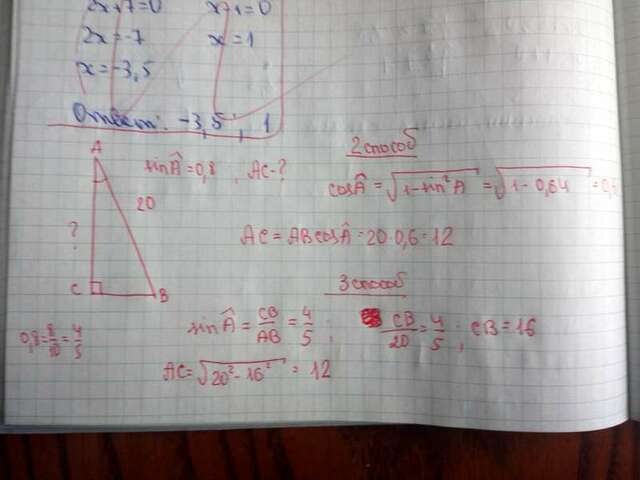 2x+7=0
x-1=0
2x=-7
x=1
x=-3,5
Ответ: -3,5; 1
A
sin Â=0,8, AC-?
20
?
C
B
0,8=8/10=4/5
2 способ
cos Â=√(1-sin²A)=√(1-0,64)=0,6
AC=AB cos Â=20·0,6=12
3 способ
sin Â=CB/AB=4/5; CB/20=4/5; CB=16
AC=√(20²-16²)=12